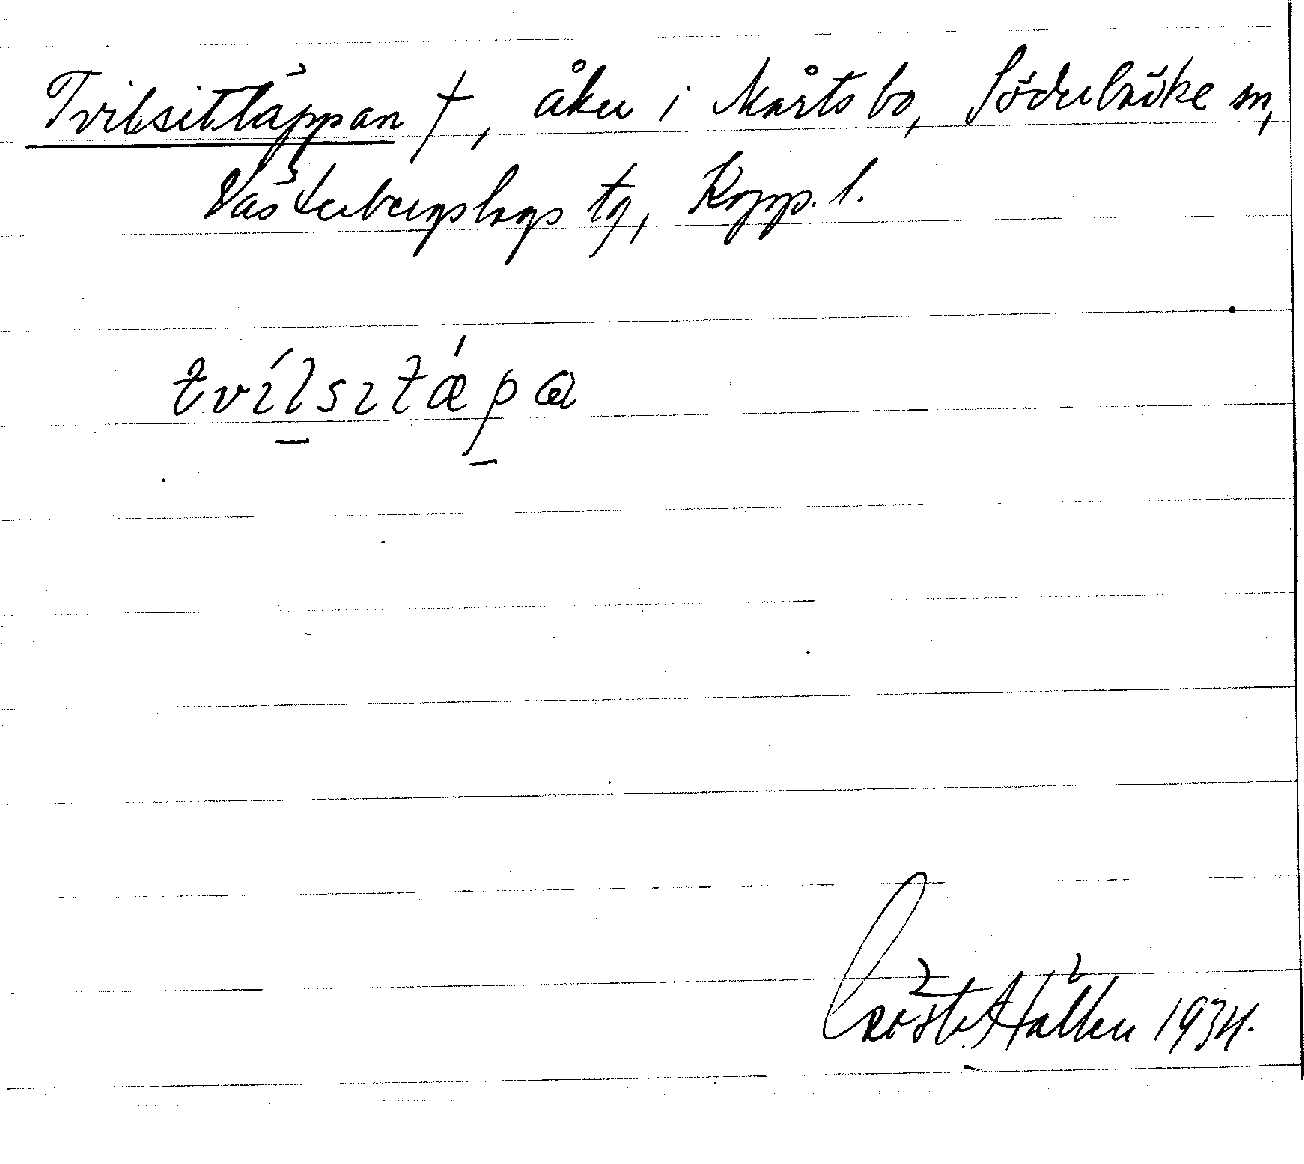 Tvilsittäppan †, åker i Mårtsbo, Söderbärke sn,
Västerbergslags tg, Kopp. l.
tvílsıtǽpa
Hällen 1934.